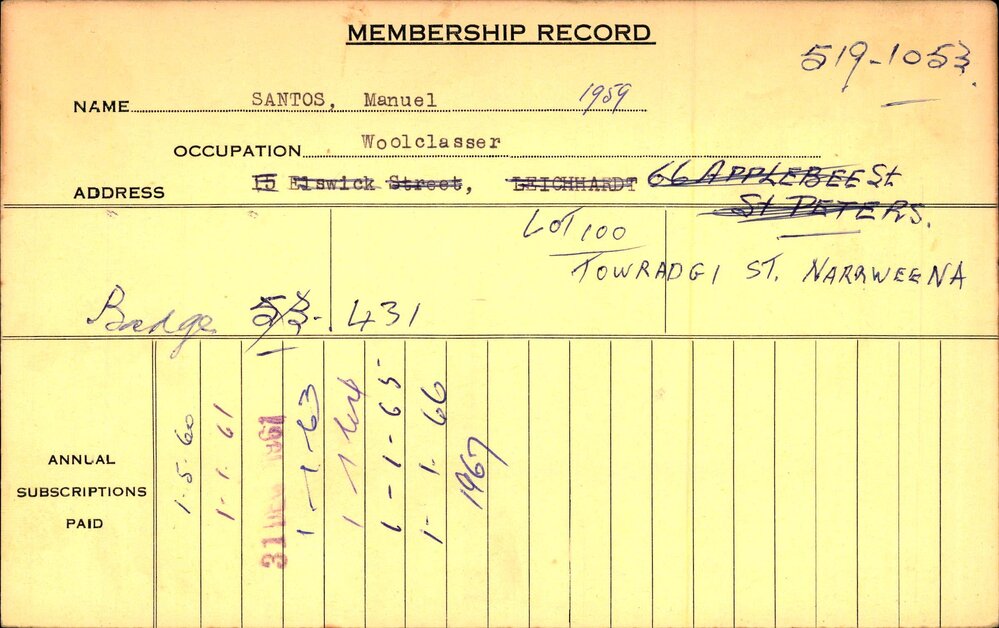 MEMBERSHIP RECORD
519-1053.
NAME SANTOS, Manuel 1959
OCCUPATION Woolclasser
ADDRESS 15 Elswick Street, LEICHHARDT 66 APPLEBEE St
St PETERS.
LOT 100
TOWRADGI ST. NARRWEENA
Badge 53. 431
ANNUAL
SUBSCRIPTIONS
PAID
1-5-60
1-1-61
31 DEC 1961
1-1-63
1-1-64
1-1-65
1-1-66
1967